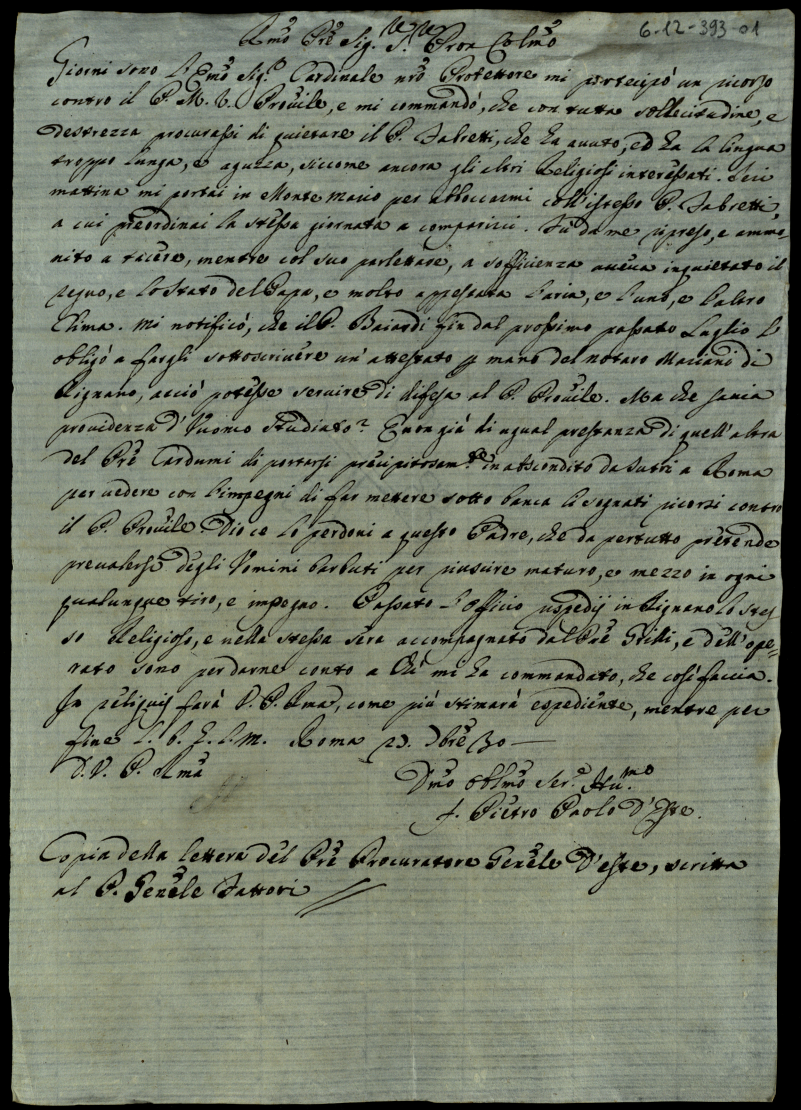 6-12-393-01
Rmõ Prẽ Sig. Sig.re Pron Colmõ
Giorni sono l'Emõ Sig.e Cardinale nrõ Protettore mi partecipò un ricorso
contro il P. M. V. Provile, e mi commandò, che con tutta sollecitudine, e
destrezza procurassi di quietare il P. Fabretti, che ha avuto, ed ha la lingua
troppo lunga, e aguzza, siccome ancora gli altri Religiosi interessati. Ieri
mattina mi portai in Monte Mario per abboccarmi coll'istesso P. Fabretti,
a cui preordinai la stessa giornata a comparirci. Fù da me ripreso, e ammo-
nito a tacere, mentre col suo parlettare, a sofficienza aveva inquietato il
regno, e lo stato del Papa, e molto appestata l'aria, e l'uno, e l'altro
Clima. Mi notificò, che il P. Baiardi fin dal prossimo passato Luglio l'
obligò a fargli sottoscrivere un'attestato p mano del notaro Maciani di
Rignano, acciò potesse servire di difesa al P. Provile. Ma che savia
providenza d'Vuomo studiato? E non già di ugual prestanza di quell'altra
del Prẽ Cardumi di portarsi precipitosam.te in ascondito da Sutri a Roma
per vedere con l'impegni di far mettere sotto banca li segnati ricorsi contro
il P. Provile? Dio ce lo perdoni a questo Padre, che da pertutto pretende
prevalersi degli Vomini barbuti per riuscire maturo, e mezzo in ogni
qualunque tiro, e impegno. Passato l'officio rispedij in Rignano lo stes-
so Religioso, e nella stessa sera accompagnato dal Prẽ Grilli, e dell'ope-
rato sono per darne conto a chi mi ha commandato, che così faccia.
In reliquis farà V. P. Rma, come più stimarà espediente, mentre per
fine l. b. l. m. Roma 23. Xbrẽ 30 —
D. V. P. Rmã
Dmõ Oblmõ Ser.e Hu.mo
f. Pietro Paolo D'Este.
Copia della lettera del Prẽ Procuratore Genẽle D'este, scritta
al P. Genẽle Fattori